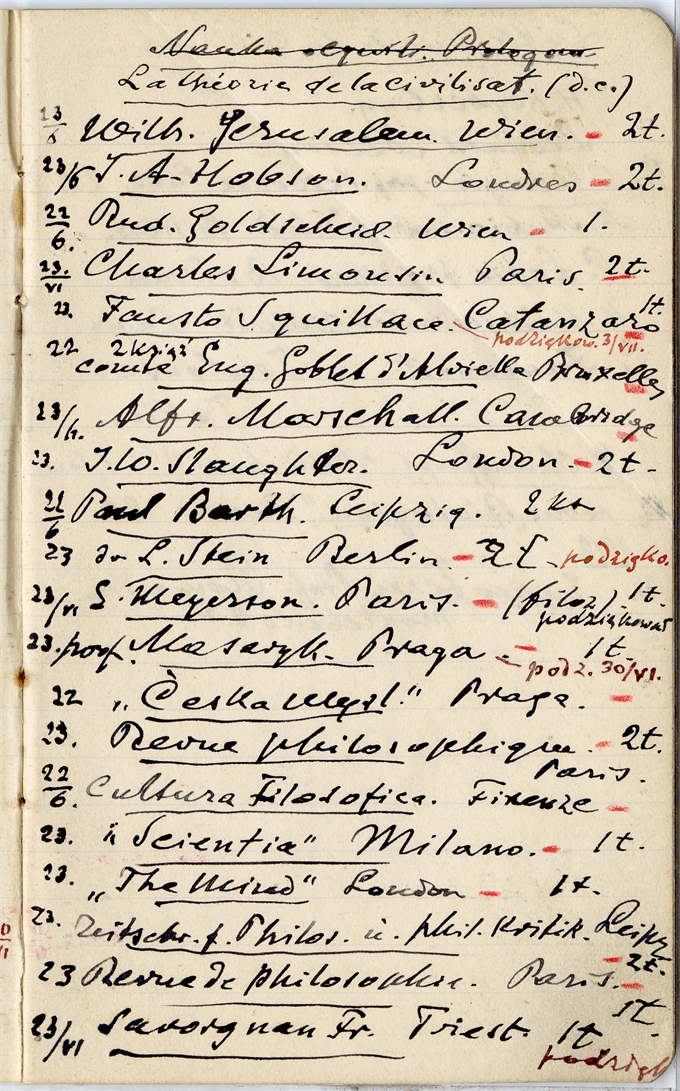 Nauka
La théorie de la civilisat. (d.c.)
23/6 Wilh. Jerusalem. Wien. - 2t.
23/6 J. A. Hobson. Londres - 2t.
22/6. Rud. Goldscheid. Wien - 1.
23./VI Charles Limousin Paris. 2t.
23. Fausto Squillace. Catanzaro 1t.
podziękow. 3/VII.
22 2 książ
comte Eug. Goblet d'Alviella Bruxelles
23/6. Alfr. Marschall. Cambridge
23. J.W. Slaughter. London. - 2t.
21/6 Paul Barth. Leipzig. 2
23 dr L. Stein Berlin. - 2t - podzięko.
23/VI E. Meyerson. Paris. - (filoz) 1t.
podziękował
23. prof. Masaryk. Praga. - 1t.
podz. 30/VI.
22 „Česka Mysl." Praga. -
23. Revue philosophique. - 2t.
Paris.
22/6. Cultura Filosofica. Firenze -
23. „Scientia" Milano. - 1t.
23. „The Mind" London - 1t.
23. Zeitschr. f. Philos. u. phil. Kritik. Leipz
- 2t.
23 Revue de philosophie. Paris. -
1t.
23/VI Savorgnan Fr. Triest. 1t
podzięk